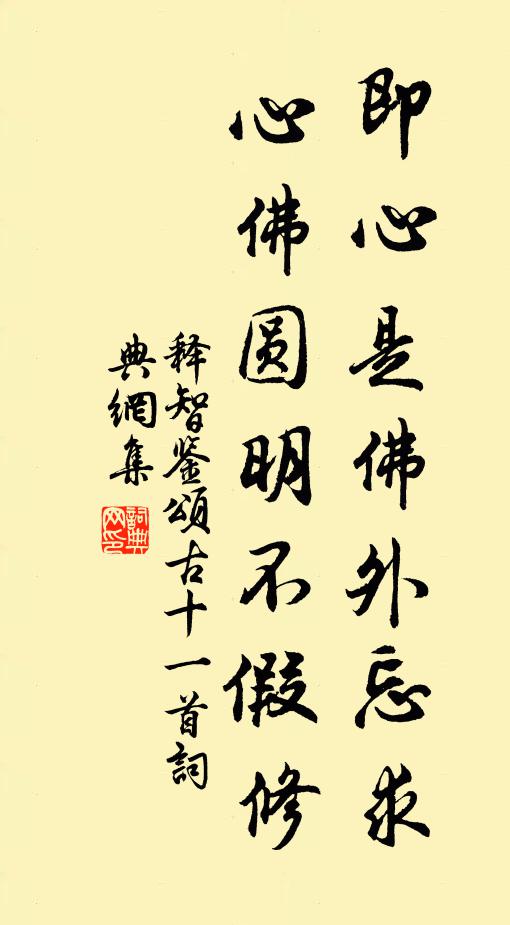 即心是佛外忘求
心佛圆明不假修
释智鉴頌古十一首詞
典網集
詞典
网印